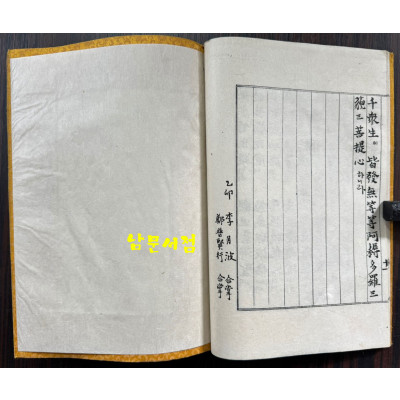 千衆生 皆發無等等阿耨多羅三
藐三菩提心
乙卯 李月波 合掌
鄭普賢行 合掌
남문서점